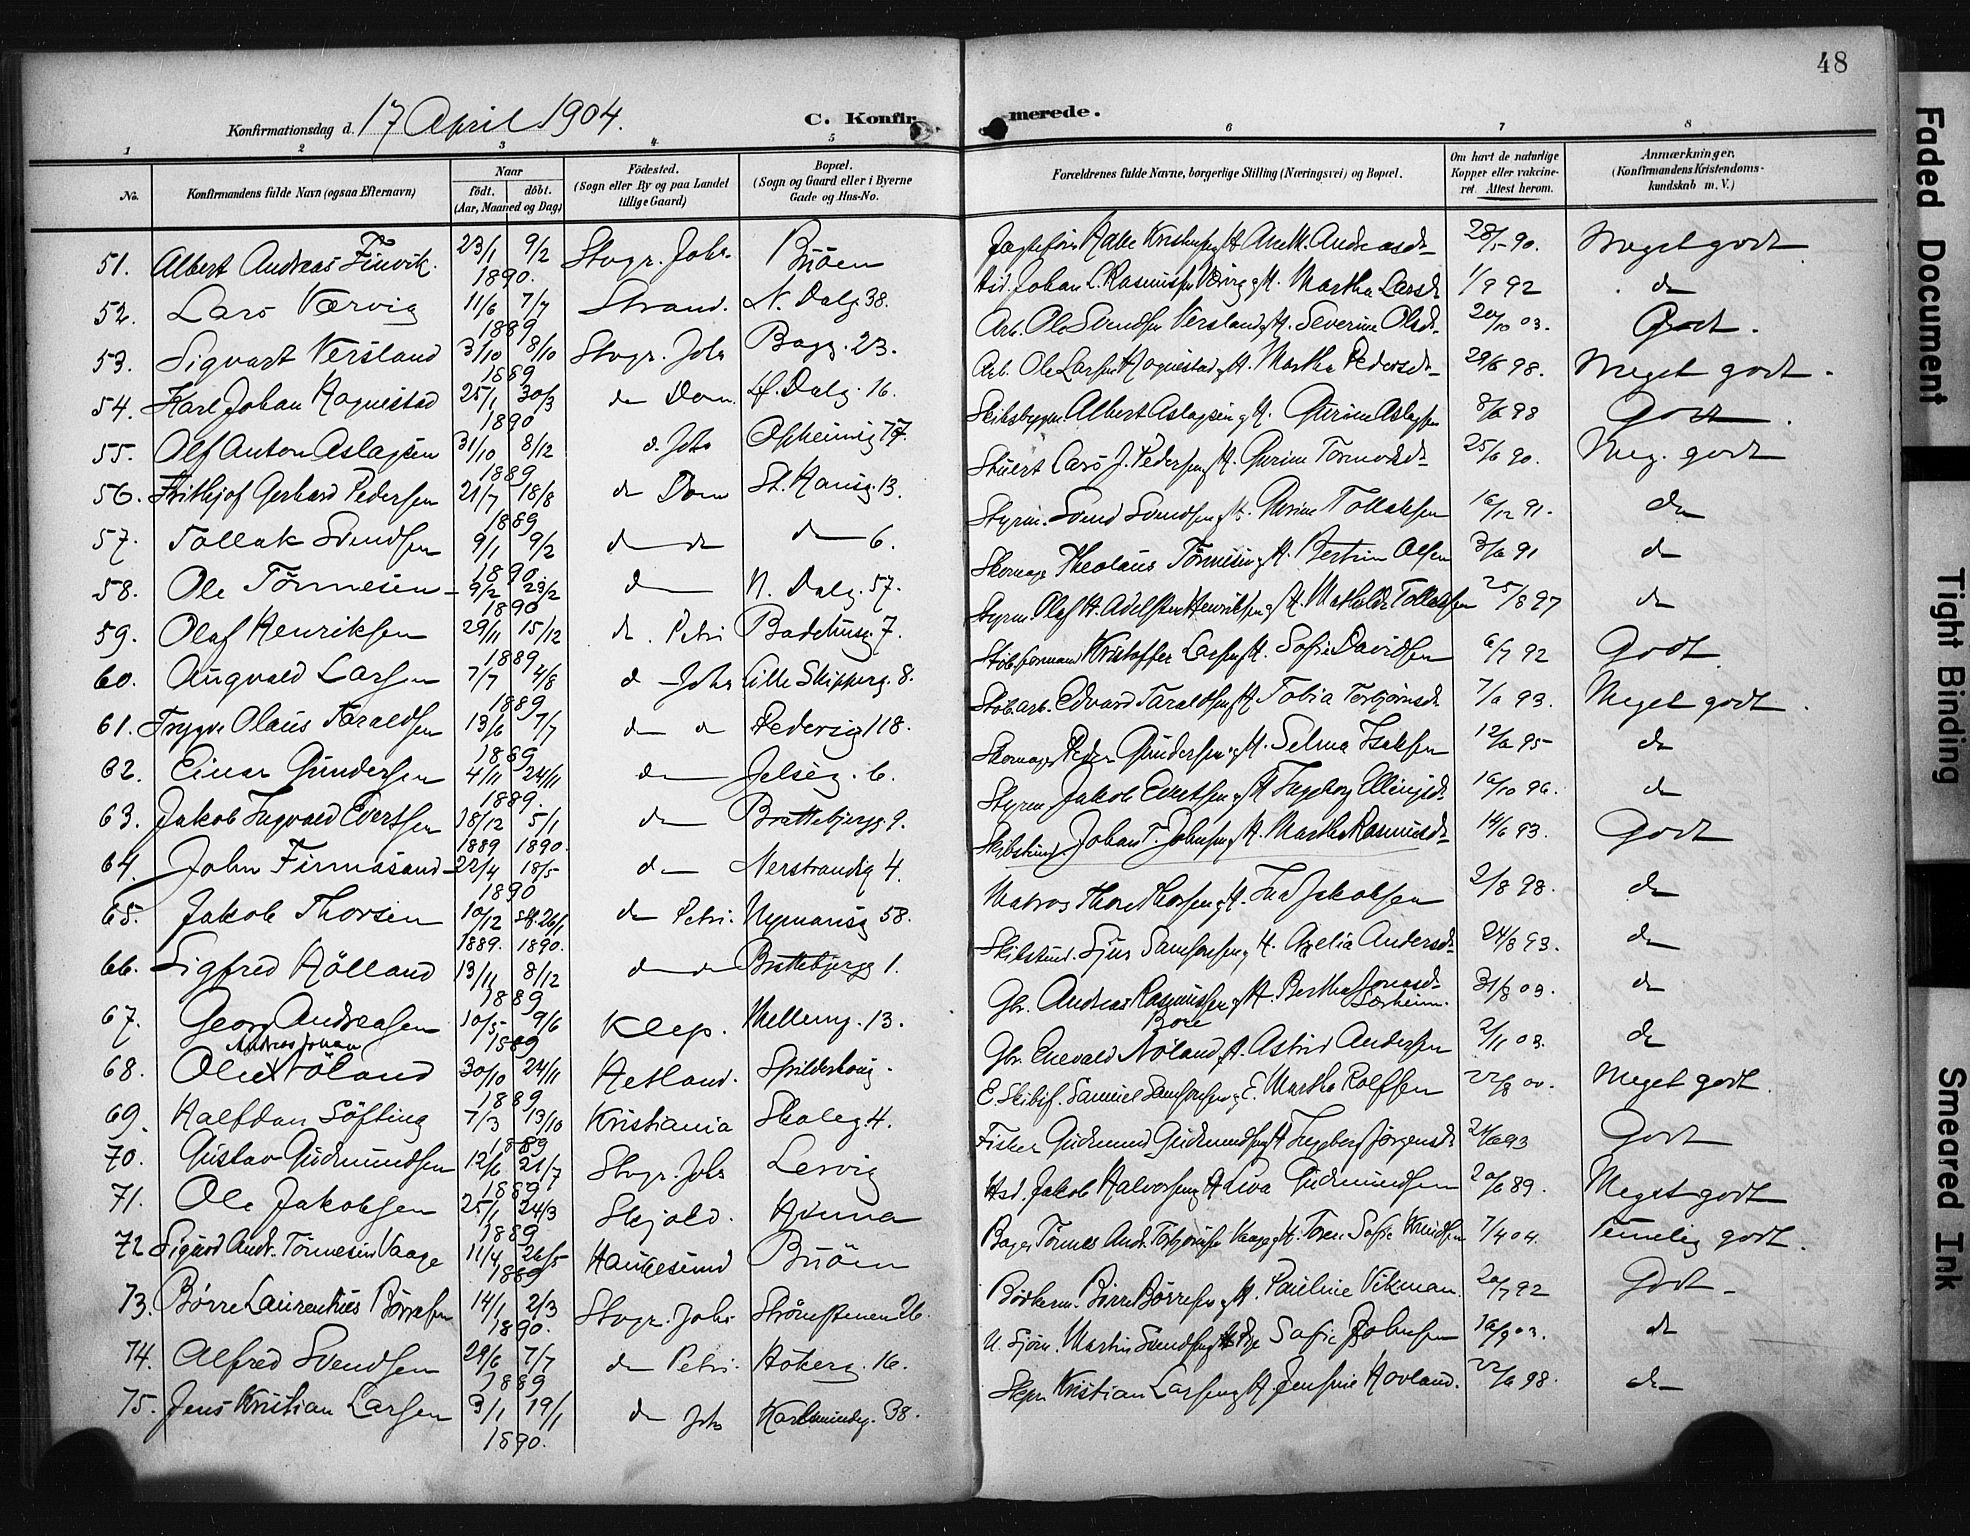 48
Konfirmationsdag d. 17 April 1904. C. Konfirmerede.
1 2 3 4 5 6 7 8
No. Konfirmandens fulde Navn (ogsaa Efternavn) Naar født. døbt. (Aar, Maaned og Dag) Födested. (Sogn eller By og paa Landet tillige Gaard) Bopæl. (Sogn og Gaard eller i Byerne Gade og Hus-No. Forældrenes fulde Navne, borgerlige Stilling (Næringsvei) og Bopæl. Om havt de naturlige Kopper eller vaccineret. Attest herom. Anmærkninger. (Konfirmandens Kristendomskundskab m. V.)
51. Albert Andreas Finvik. 23/1 9/2 1890. Stvgr. Johs. Buöen Kristensen H. Andreasd. 28/5 90. Meget godt
52. Lars Værvig 11/6 7/7 1889 Strand. N. Dalg. 38. Johan L. Rasmussen H. Martha Larsd. 1/9 92 do
53. Sigvart Versland 3/10 8/10 1889 Stvgr. Johs Berg. 23. Arb. Ole Svendsen Versland H. Severine Olsd. 20/10 03. Godt.
54. Karl Johan Hognestad 25/1 30/3 1890 do Dom. N. Dalg. 16. Arb. Ole Larsen Hognestad H. Martha Pedersd. 29/6 98. Meget godt.
55. Olf Anton Aslagsen 31/10 8/12 1889 d. Johs Albert Aslagsen H. 98 Godt.
56. Frithjof Gerhard Pedersen 21/7 18/8 1889 do Dom St. Hansg. 13. Lars J. Pedersen H. Gurine Tormodsd. 25/6 90. Meg. godt
57. Tollak Svendsen 9/1 9/2 1890. do do do 6. Styrm. Svend Svendsen H. Tollaksen 16/12 91. do
58. Ole Tönnesen 9/2 23/2 1890 do N. Dalg. 57. Skomager Theolaus Tönnesen H. Olsen 91 do
59. Olaf Henriksen 29/11 15/12 1889 do. Petri Badehusg. 7. Styrm. Olaf H. Henriksen H. Mathilde Tollaksen 25/8 97 do
60. Augvald Larsen 7/7 4/8 1889 d Johs Lille Skipperg. 8. Kristoffer Larsen H. Sofie Davidsen 6/7 92 Godt
61. Trygve Olaus Taraldsen 13/6 7/7 1889 do d Pedersg 118. Edvard Taraldsen H. Tobia Torbjørnsd. 93. Meget godt.
62. Einar Gundersen 4/11 24/11 1889. do Jelsøg. 6. Skomager Peder Gundersen H. Selma Isaksen 95 do
63. Jakob Ingvald Evertsen 18/12 5/1 1889 1890. do Brattebjergg. 9. Styrm. Jakob Evertsen H. Ingeborg 16/10 96. do
64. John Finnäsand 22/4 18/5 1890 do Nerstrandsg 4. Johan T. Johnsen H. Martha Rasmusd. 14/6 93. Godt
65. Jakob Thorsen 10/12 26/1 1889. 1890. do Petri. Nymansg 58. Matros Thore Thorsen H. Jakobsen 2/8 98. do
66. Sigfred Hölland 13/11 8/12 1889 do do Brattebjergg 1. Samsonsen H. Axelia Andersd. 24/8 93. do
67. Georg Andreasen 10/5 9/6 1889 Klep. 13. Gbr. Andreas Rasmussen Bore H. Bertha Jonasd. Særheim. 31/8 03. do
68. Olene Andreas Johan Nöland 30/10 24/11 1889 Hetland. Spilderhaug. Gbr. Enevald Nöland H. Astrid Andersen 2/11 03. do
69. Halfdan Söfting 7/3 13/10 1889 Kristiania Skoleg. 4. E. Skibsf. Samuel Samsonsen E. Martha Rolfsen 22/8 00. Meget godt.
70. Gustav Gudmundsen 12/6 21/7 1889 Stvgr. Johs Lervig Fisker Gudmund Gudmundsen H Ingeborg Jørgensd. 93 Godt
71. Ole Jakobsen 25/1 24/3 1889 Skjold. Jakob Halvorsen H. Gudmundsen 89. Meget godt
72 Sigurd Andr. Tönnesen Vaage 11/4 26/5 1889 Haugesund Buöen Tönnes Andr. Torbjørnsen Vaage H. Sofie Knudsen 7/4 04. Temelig godt.
73. Börre Laurentius Börresen 14/1 2/3 1890. Stvgr. Johs Strömstenen 26. Börre Börresen H. Pauline Vikman. 20/7 92 Godt
74. Alfred Svendsen 29/6 7/7 1889 do Petri. Höberg. 16. Martin Svendsen Sofie Johnsen 16/9 03. do
75. Jens Kristian Larsen 3/1 19/1 1890. do Johs Karlsmindeg. 38. Kristian Larsen H. Jensine Hovland. 98. do
Faded Document
Tight Binding
Smeared Ink